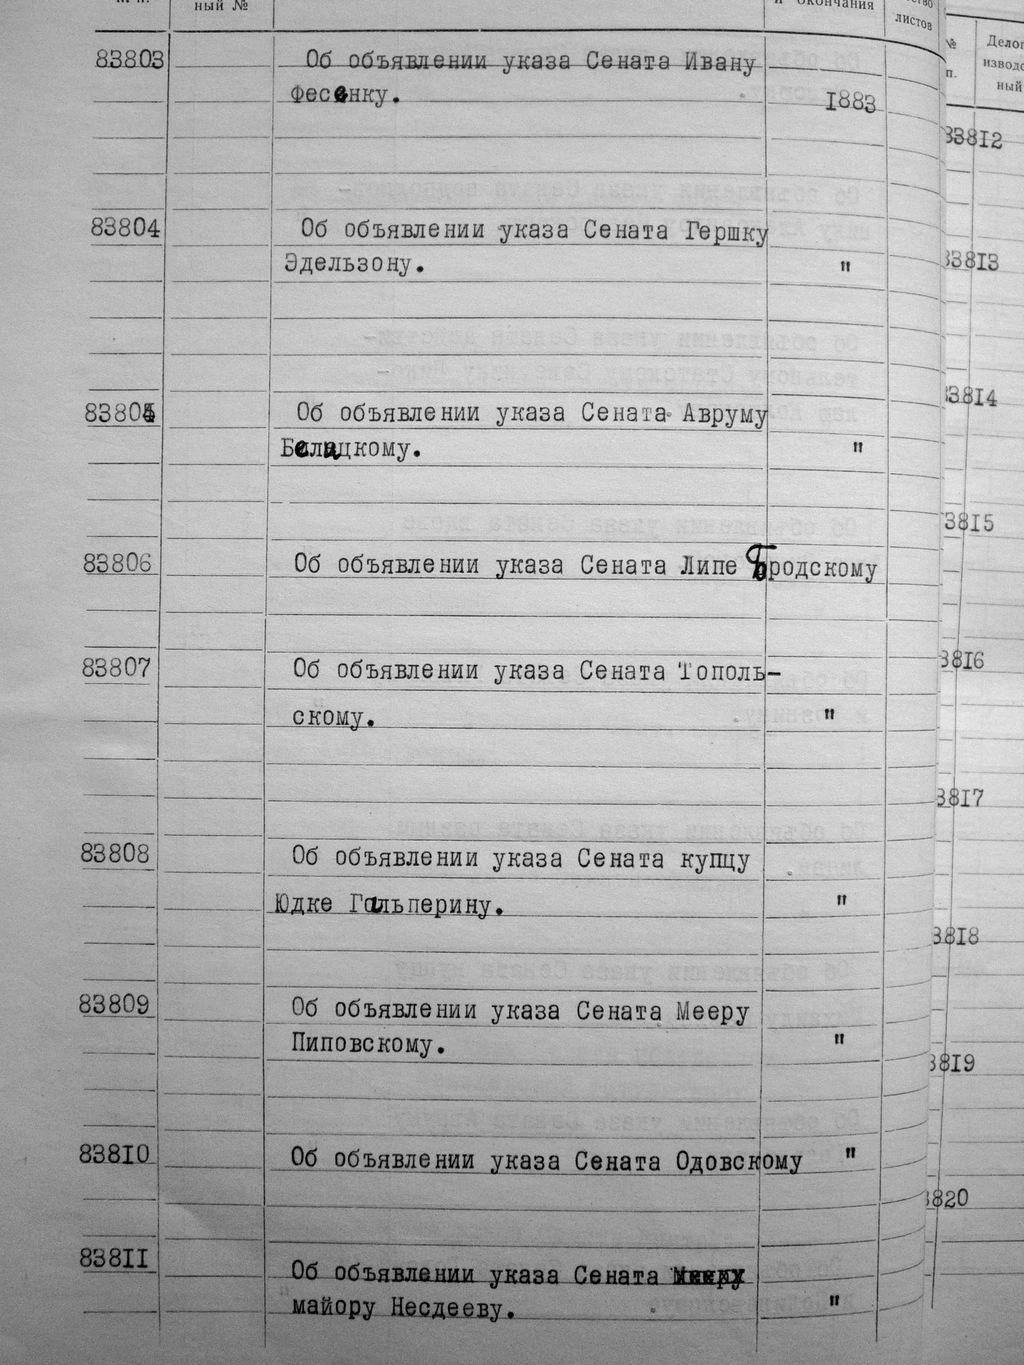 ный № и окончания листов
83803 Об объявлении указа Сената Ивану
Фесенку. 1883
83804 Об объявлении указа Сената Гершку
Эдельзону. "
83805 Об объявлении указа Сената Авруму
Белацкому. "
83806 Об объявлении указа Сената Липе Бродскому
83807 Об объявлении указа Сената Тополь-
скому. "
83808 Об объявлении указа Сената купцу
Юдке Гальперину. "
83809 Об объявлении указа Сената Мееру
Пиповскому. "
83810 Об объявлении указа Сената Одовскому "
83811 Об объявлении указа Сената
майору Несдееву. "
№ Делоп
п. изводс
ный
83812
83813
83814
83815
3816
3817
3818
3819
3820